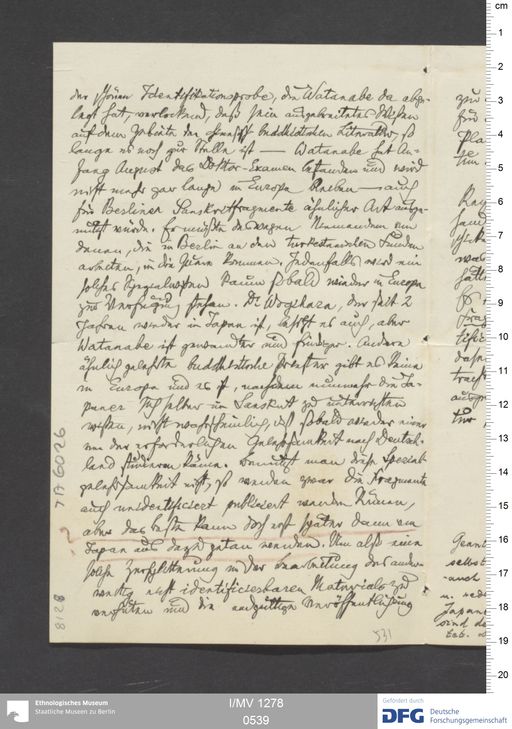 der schönen Identifikationsprobe, die Watanabe da abge-
legt hat, verlockend, dass sein ausgebreitetes Wissen
auf dem Gebiete der buddhistischen Literatur, so
lange es noch zur Stelle ist — Watanabe hat An-
fang August das Doktor-Examen bestanden und wird
nicht mehr gar lange in Europa bleiben — auch
für Berliner Sanskritfragmente ähnlicher Art ausge-
nützt würde. Er müsste deswegen Niemandem von
denen, die in Berlin an den turkestanischen Funden
arbeiten, in die Quere kommen. Jedenfalls wird ein
solches Spezialwissen kaum sobald wieder in Europa
zur Verfügung stehen. Dr. Wogihara, der seit 2
Jahren wieder in Japan ist, besitzt es auch, aber
Watanabe ist gewandter und findiger. Andere
ähnlich gelehrte buddhistische Priester gibt es keine
in Europa und es ist, nachdem nunmehr die Ja-
paner sich selber im Sanskrit zu unterrichten
wissen, nicht wahrscheinlich, dass sobald wieder einer
von der erforderlichen Gelehrsamkeit nach Deutsch-
land studieren käme. Benützt man diese Spezial-
gelehrsamkeit nicht, so werden zwar die Fragmente
auch unidentifiziert publiziert werden können,
aber das beste kann doch erst später dann von
Japan aus dazu getan werden. Um also eine
solche Zersplitterung in der Bearbeitung des ander-
weitig nicht identifizierbaren Materials zu
verhüten und die endgültige Veröffentlichung
531
TA 6026
8128
?
I/MV 1278
0539
Ethnologisches Museum
Staatliche Museen zu Berlin
Gefördert durch
DFG
Deutsche
Forschungsgemeinschaft
cm
1
2
3
4
5
6
7
8
9
10
11
12
13
14
15
16
17
18
19
20